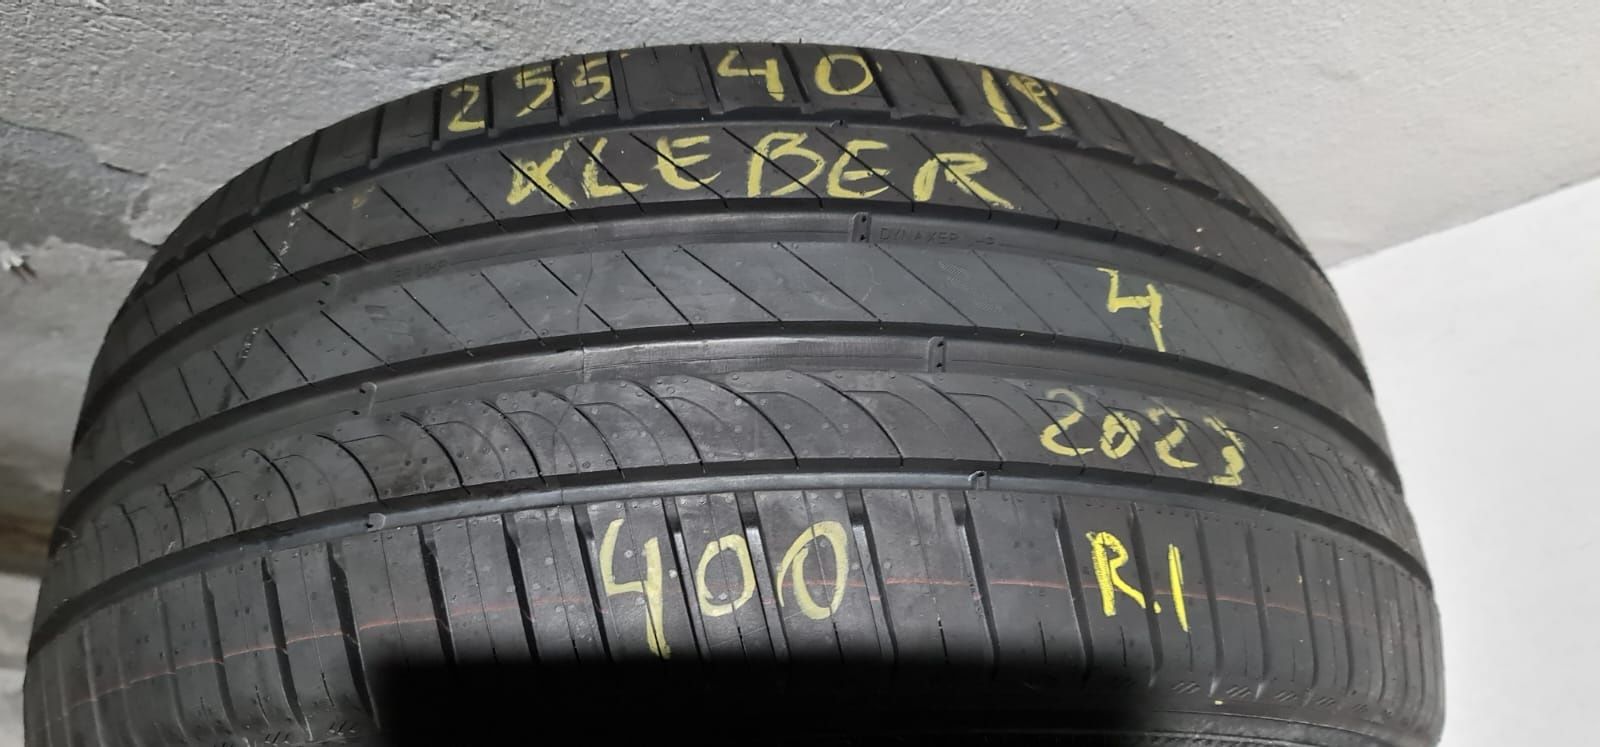 255 40 19
KLEBER
DYNAXER
4
2023
400
R.1